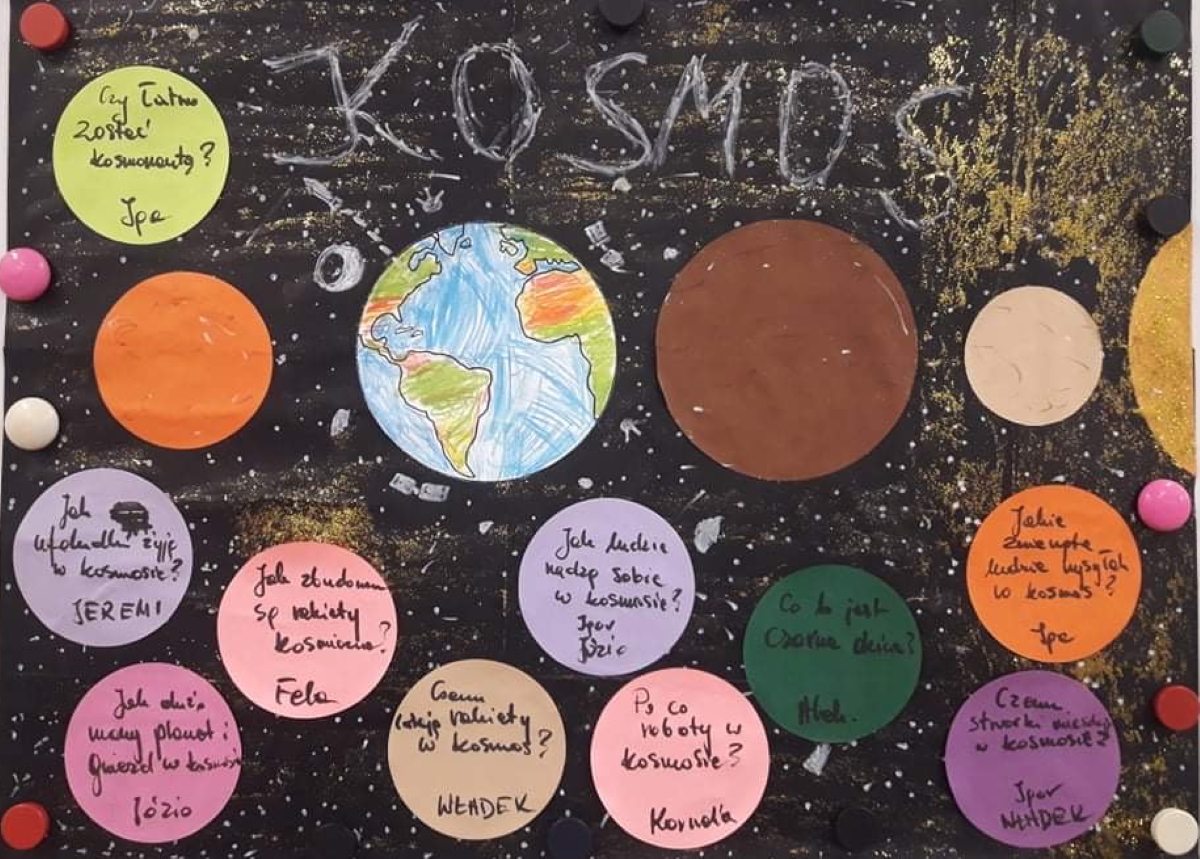 KOSMOS
Czy łatwo
zostać
kosmonautą?
Iga
Jak
ufoludki żyją
w kosmosie?
JEREMI
Jak zbudowane
są rakiety
kosmiczne?
Fela
Jak ludzie
radzą sobie
w kosmosie?
Igor
Józio
Co to jest
Czarna dziura?
Alek.
Jakie
zwierzęta
ludzie wysyłali
w kosmos?
Iga
Jak dużo
mamy planet i
gwiazd w kosmosie
Józio
Czemu
latają rakiety
w kosmos?
WŁADEK
Po co
roboty w
kosmosie?
Kornelia
Czemu
stworki mieszkają
w kosmosie?
Igor
WŁADEK